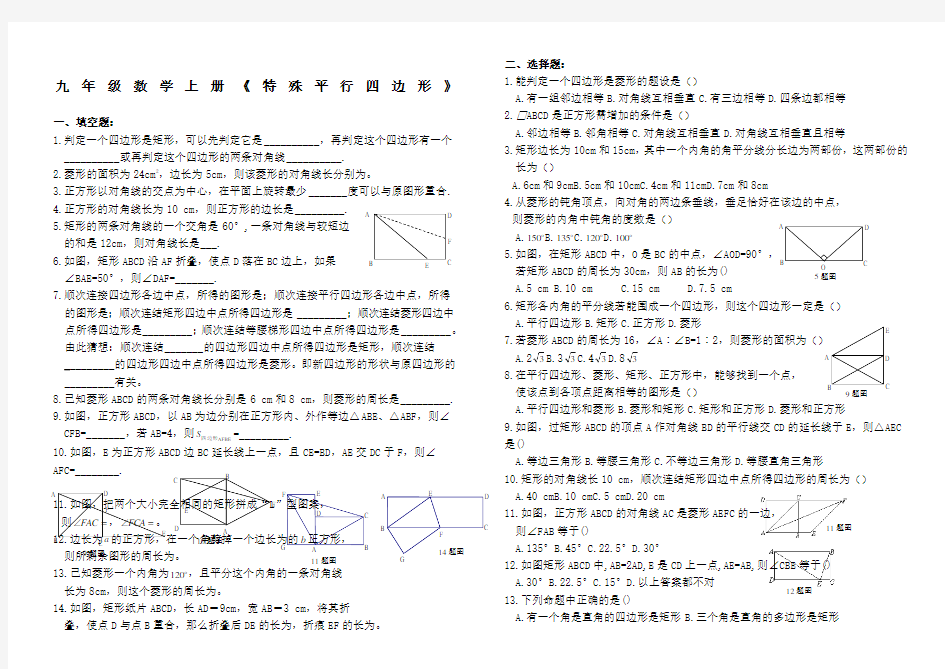 九年级数学上册《特殊平行四边形》
一、填空题:
1.判定一个四边形是矩形,可以先判定它是__________,再判定这个四边形有一个
__________或再判定这个四边形的两条对角线__________.
2.菱形的面积为24cm²,边长为5cm,则该菱形的对角线长分别为。
3.正方形以对角线的交点为中心,在平面上旋转最少_______度可以与原图形重合.
4.正方形的对角线长为10 cm,则正方形的边长是_________.
5.矩形的两条对角线的一个交角是60°,一条对角线与较短边
的和是12cm,则对角线长是___.
6.如图,矩形ABCD沿AF折叠,使点D落在BC边上,如果
∠BAE=50°,则∠DAF=_______.
A
D
F
B
E
C
7.顺次连接四边形各边中点,所得的图形是;顺次连接平行四边形各边中点,所得
的图形是;顺次连结矩形四边中点所得四边形是_________;顺次连结菱形四边中
点所得四边形是_________;顺次连结等腰梯形四边中点所得四边形是_________。
由此猜想:顺次连结_______的四边形四边中点所得四边形是矩形,顺次连结
_________的四边形四边中点所得四边形是菱形。即新四边形的形状与原四边形的
_________有关。
8.已知菱形ABCD的两条对角线长分别是6 cm和8 cm,则菱形的周长是_________.
9.如图,正方形ABCD,以AB为边分别在正方形内、外作等边△ABE、△ABF,则∠
CFB=_______,若AB=4,则S四边形AFBE=_________.
10.如图,E为正方形ABCD边BC延长线上一点,且CE=BD,AE交DC于F,则∠
AFC=________.
11.如图,把两个大小完全相同的矩形拼成“L”型图案,
则∠FAC=,∠FCA=。
12.边长为a的正方形,在一个角剪掉一个边长为的b正方形,
则所剩余图形的周长为。
11题图
14题图
13.已知菱形一个内角为120°,且平分这个内角的一条对角线
长为8cm,则这个菱形的周长为。
14.如图,矩形纸片ABCD,长AD=9cm,宽AB=3 cm,将其折
叠,使点D与点B重合,那么折叠后DE的长为,折痕EF的长为。
二、选择题:
1.能判定一个四边形是菱形的题设是()
A.有一组邻边相等B.对角线互相垂直C.有三边相等D.四条边都相等
2.□ABCD是正方形需增加的条件是()
A.邻边相等B.邻角相等C.对角线互相垂直D.对角线互相垂直且相等
3.矩形边长为10cm和15cm,其中一个内角的角平分线分长边为两部份,这两部份的
长为()
A.6cm和9cmB.5cm和10cmC.4cm和11cmD.7cm和8cm
4.从菱形的钝角顶点,向对角的两边条垂线,垂足恰好在该边的中点,
则菱形的内角中钝角的度数是()
A.150°B.135°C.120°D.100°
5.如图,在矩形ABCD中,O是BC的中点,∠AOD=90°,
若矩形ABCD的周长为30cm,则AB的长为()
A.5 cm B.10 cm C.15 cm D.7.5 cm
A
D
B
O
C
5题图
6.矩形各内角的平分线若能围成一个四边形,则这个四边形一定是()
A.平行四边形B.矩形C.正方形D.菱形
7.若菱形ABCD的周长为16,∠A∶∠B=1∶2,则菱形的面积为()
A.2√3B.3√3C.4√3D.8√3
8.在平行四边形、菱形、矩形、正方形中,能够找到一个点,
使该点到各顶点距离相等的图形是()
E
A
D
B
C
9题图
A.平行四边形和菱形B.菱形和矩形C.矩形和正方形D.菱形和正方形
9.如图,过矩形ABCD的顶点A作对角线BD的平行线交CD的延长线于E,则△AEC
是()
A.等边三角形B.等腰三角形C.不等边三角形D.等腰直角三角形
10.矩形的对角线长10 cm,顺次连结矩形四边中点所得四边形的周长为()
A.40 cmB.10 cmC.5 cmD.20 cm
11.如图,正方形ABCD的对角线AC是菱形AEFC的一边,
则∠FAB等于()
11题图
A.135°B.45°C.22.5°D.30°
12.如图矩形ABCD中,AB=2AD,E是CD上一点,AE=AB,则∠CBE等于()
A.30°B.22.5°C.15°D.以上答案都不对
12题图
13.下列命题中正确的是()
A.有一个角是直角的四边形是矩形B.三个角是直角的多边形是矩形